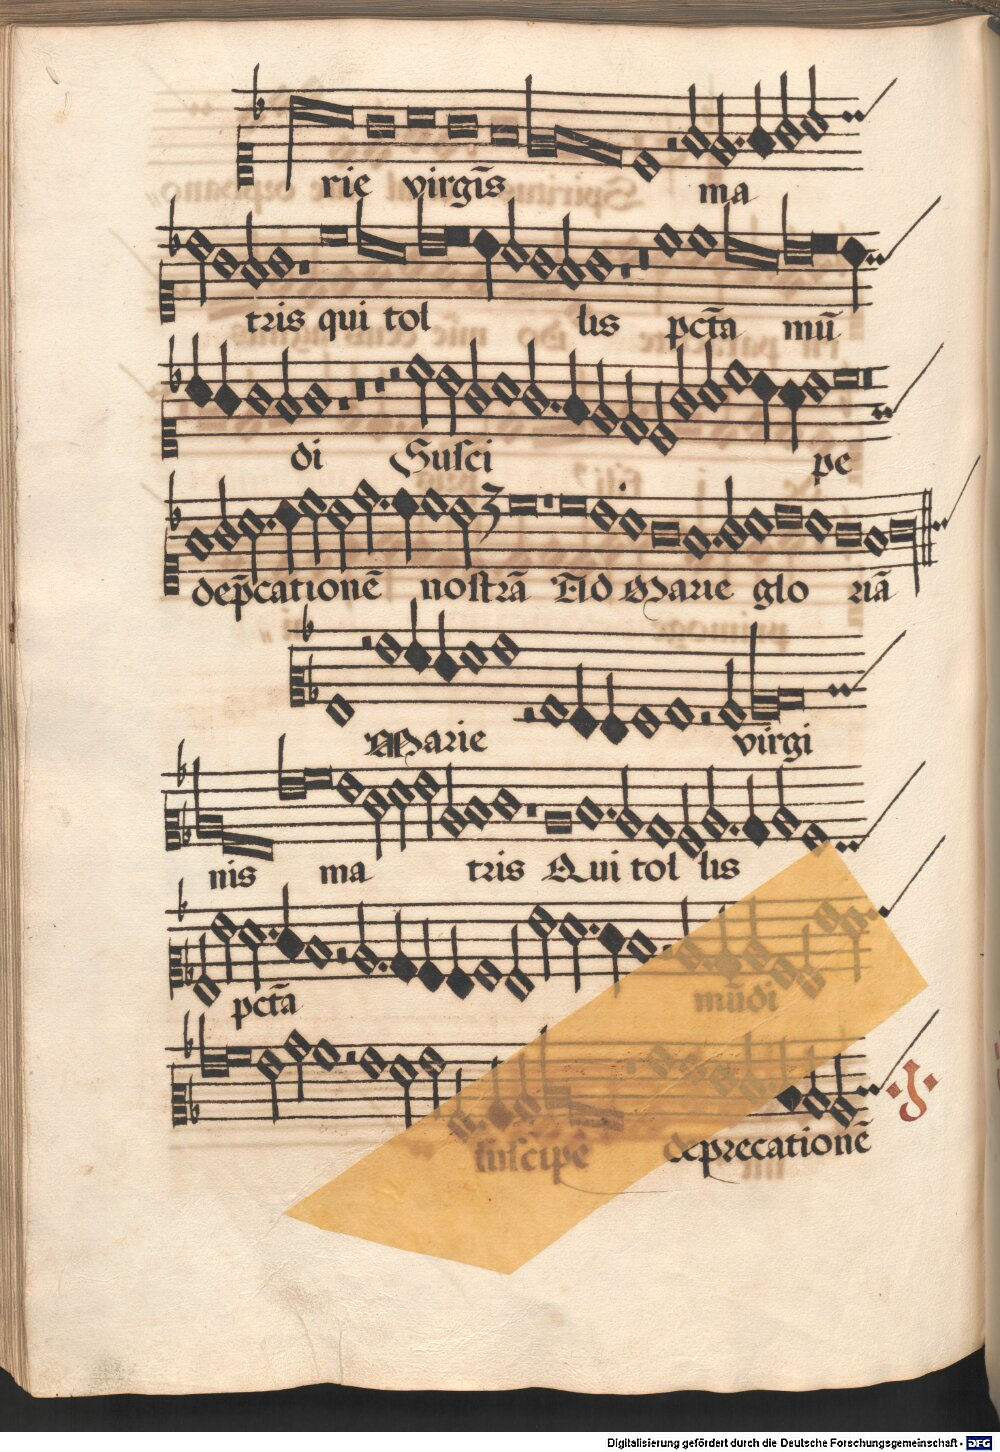 rie virgīs ma
tris qui tol lis pctā mū
di Susci pe
dep̄cationē nostrā Ad Marie glo riā
Marie virgi
nis ma tris Qui tol lis
pctā mūdi
suscipe deprecationē
Digitalisierung gefördert durch die Deutsche Forschungsgemeinschaft - DFG